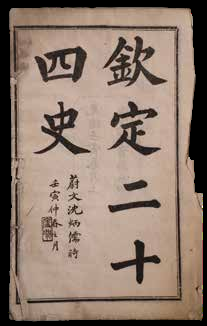 欽定二十
四史
蔚文沈炳儒時
壬寅仲春上月